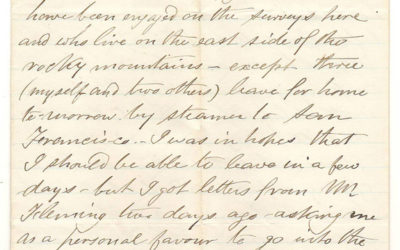 have been engaged on the surveys here
and who live on the east side of the
rocky mountains - except three
(myself and two others) leave for home
to-morrow by steamer to San
Francisco - I was in hopes that
I should be able to leave in a few
days - but I got letters from Mr
Fleming two days ago - asking me
as a personal favour to go into the